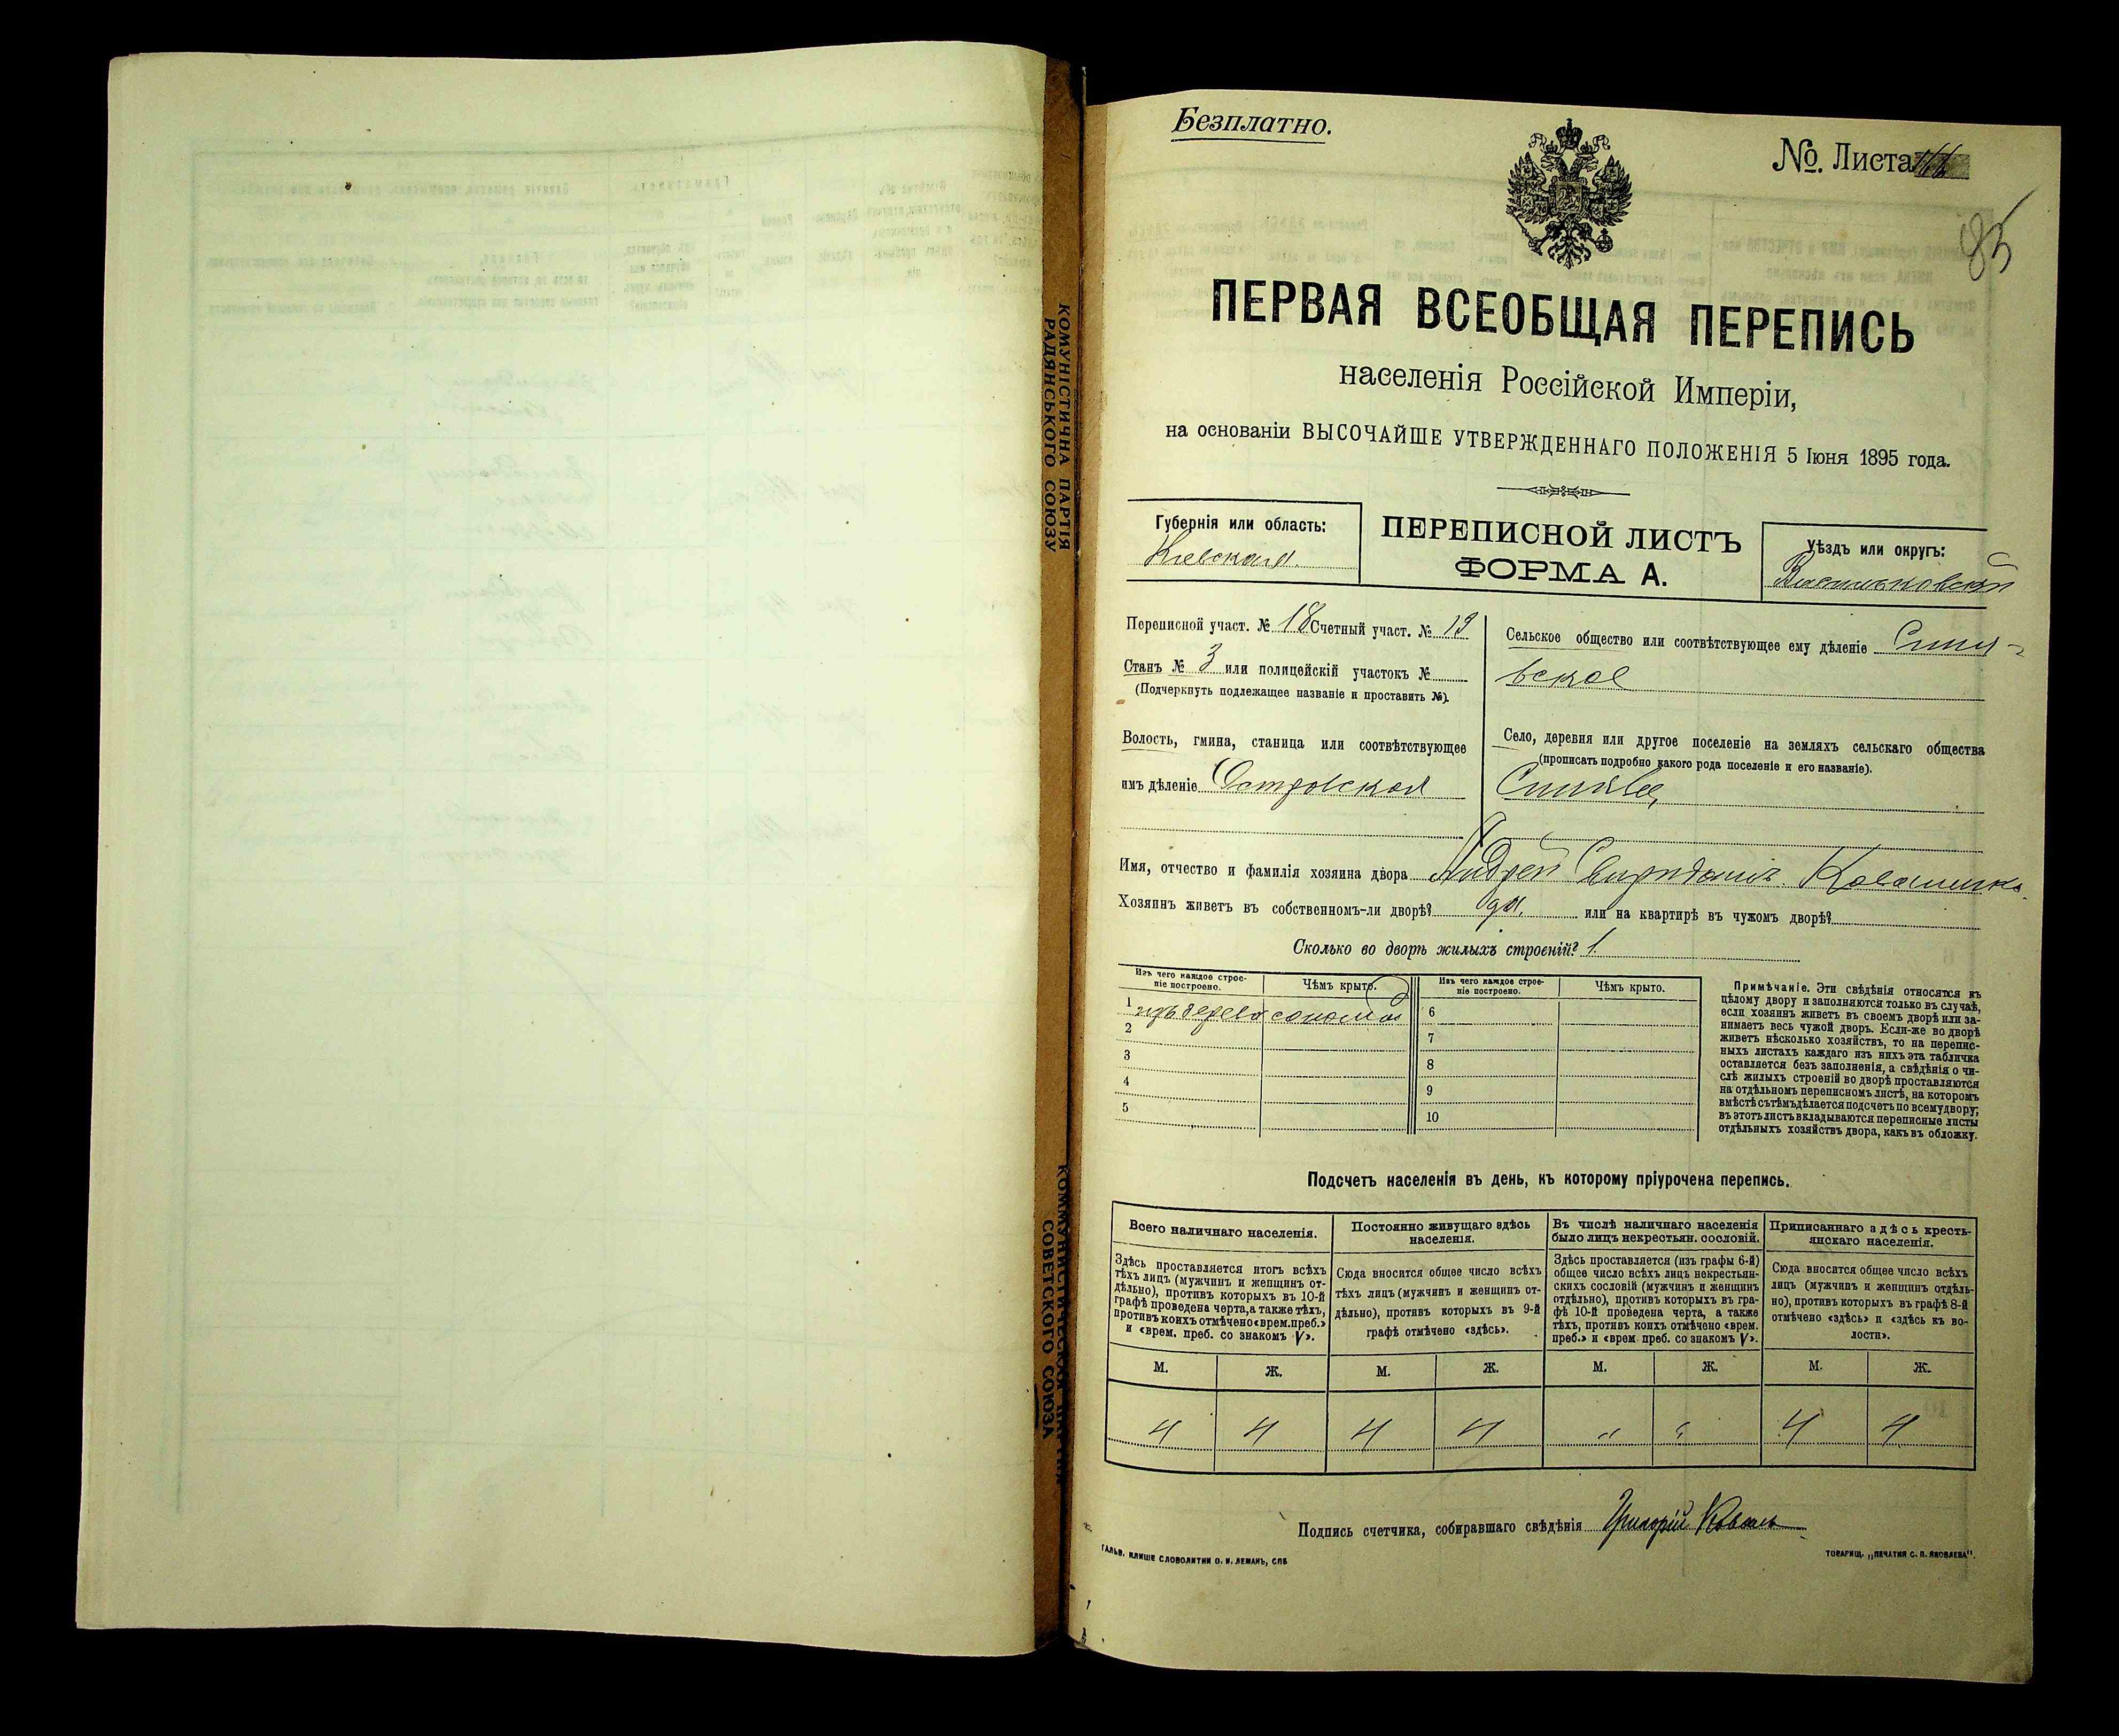 КОМУНІСТИЧНА ПАРТІЯ
РАДЯНСЬКОГО СОЮЗУ
СОВЕТСКОГО СОЮЗА
Безплатно.
№ Листа
85
ПЕРВАЯ ВСЕОБЩАЯ ПЕРЕПИСЬ
населенія Россійской Имперіи,
на основаніи ВЫСОЧАЙШЕ УТВЕРЖДЕННАГО ПОЛОЖЕНІЯ 5 Іюня 1895 года.
Губернія или область:
Кіевская.
ПЕРЕПИСНОЙ ЛИСТЪ
ФОРМА А.
Уѣздъ или округъ:
Васильковскій
Переписной участ. № 18 Счетный участ. № 19
Станъ № 3 или полицейскій участокъ №
(Подчеркнуть подлежащее названіе и проставить №).
Волость, гмина, станица или соотвѣтствующее
имъ дѣленіе Островская
Сельское общество или соотвѣтствующее ему дѣленіе Синя-
вское
Село, деревня или другое поселеніе на земляхъ сельскаго общества
(прописать подробно какого рода поселеніе и его названіе).
Имя, отчество и фамилія хозяина двора Андрей
Хозяинъ живетъ въ собственномъ-ли дворѣ? да, или на квартирѣ въ чужомъ дворѣ?
Сколько во дворѣ жилыхъ строеній? 1.
Изъ чего каждое строе-
ніе построено.
Чѣмъ крыто.
Изъ чего каждое строе-
ніе построено.
Чѣмъ крыто.
1 изъ дерева соломой
2
3
4
5
6
7
8
9
10
Примѣчаніе. Эти свѣдѣнія относятся къ
цѣлому двору и заполняются только въ случаѣ,
если хозяинъ живетъ въ своемъ дворѣ или за-
нимаетъ весь чужой дворъ. Если-же во дворѣ
живетъ нѣсколько хозяйствъ, то на перепис-
ныхъ листахъ каждаго изъ нихъ эта табличка
оставляется безъ заполненія, а свѣдѣнія о чи-
слѣ жилыхъ строеній во дворѣ проставляются
на отдѣльномъ переписномъ листѣ, на которомъ
вмѣстѣ съ тѣмъ дѣлается подсчетъ по всему двору;
въ этотъ листъ вкладываются переписные листы
отдѣльныхъ хозяйствъ двора, какъ въ обложку.
Подсчетъ населенія въ день, къ которому пріурочена перепись.
Всего наличнаго населенія.
Здѣсь проставляется итогъ всѣхъ
тѣхъ лицъ (мужчинъ и женщинъ от-
дѣльно), противъ которыхъ въ 10-й
графѣ проведена черта, а также тѣхъ,
противъ коихъ отмѣчено «врем. преб.»
и «врем. преб. со знакомъ V».
Постоянно живущаго здѣсь
населенія.
Сюда вносится общее число всѣхъ
тѣхъ лицъ (мужчинъ и женщинъ от-
дѣльно), противъ которыхъ въ 9-й
графѣ отмѣчено «здѣсь».
Въ числѣ наличнаго населенія
было лицъ некрестьян. сословій.
Здѣсь проставляется (изъ графы 6-й)
общее число всѣхъ лицъ некрестьян-
скихъ сословій (мужчинъ и женщинъ
отдѣльно), противъ которыхъ въ гра-
фѣ 10-й проведена черта, а также
тѣхъ, противъ коихъ отмѣчено «врем.
преб.» и «врем. преб. со знакомъ V».
Приписаннаго здѣсь кресть-
янскаго населенія.
Сюда вносится общее число всѣхъ
лицъ (мужчинъ и женщинъ отдѣль-
но), противъ которыхъ въ графѣ 8-й
отмѣчено «здѣсь» и «здѣсь къ во-
лости».
М. Ж. М. Ж. М. Ж. М. Ж.
4 4 4 4 " " 4 4
Подпись счетчика, собиравшаго свѣдѣнія Григорій Коваль
ГАЛЬВ. КЛИШЕ СЛОВОЛИТНИ О. И. ЛЕМАНЪ, СПБ
ТОВАРИЩ. „ПЕЧАТНЯ С. П. ЯКОВЛЕВА".